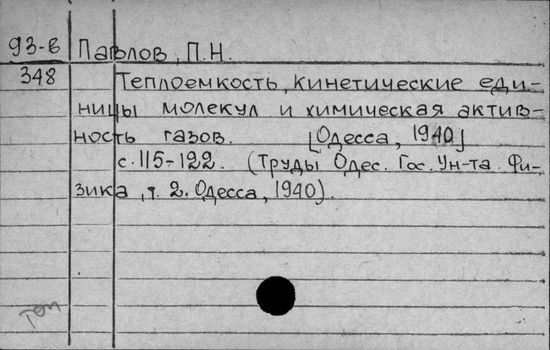 93-6 Павлов, П.Н.
348 Теплоемкость, кинетические еди-
ницы молекул и химическая актив-
ность газов. [Одесса, 1940]
с. 115-122. (Труды Одес. Гос. Ун-та. Фи-
зика, т. 2. Одесса, 1940).